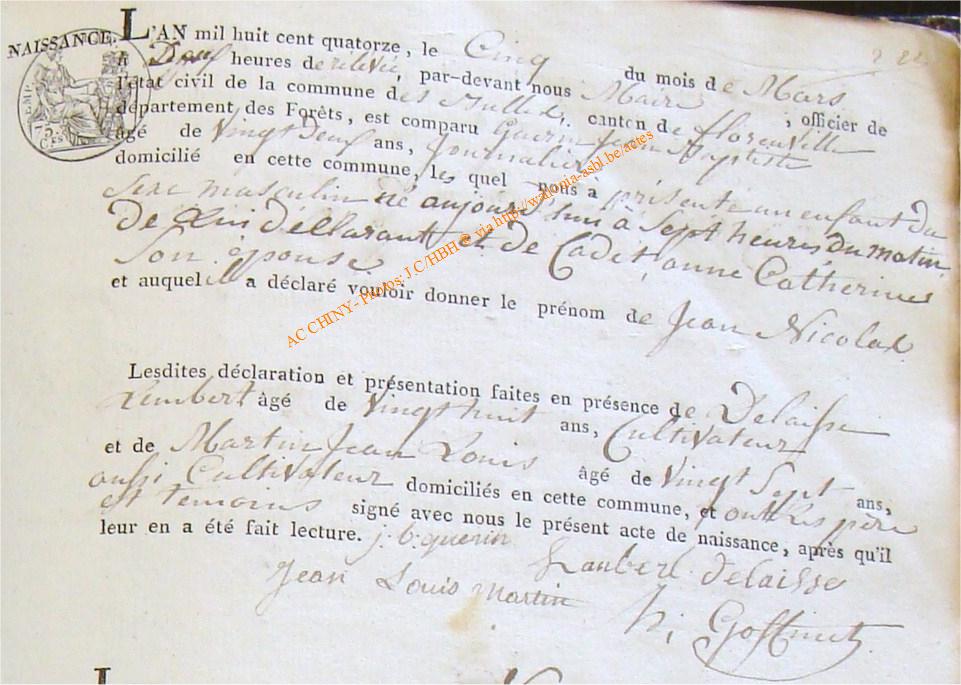 NAISSANCE.
L'AN mil huit cent quatorze, le Cinq du mois de Mars
à Deux heures de relevée, par-devant nous Maire, officier de
l'état civil de la commune des Bulles, canton de florenville
département des Forêts, est comparu Guerin Jean Baptiste
âgé de Vingt Deux ans, Journalier
domicilié en cette commune, lequel nous a présenté un enfant du
Sexe masculin né aujourd'hui à Sept heures du matin
De Lui Déclarant et de Cadet, anne Catherine
Son épouse
et auquel il a déclaré vouloir donner le prénom de Jean Nicolas
Lesdites déclaration et présentation faites en présence de Delaisse
Lambert âgé de Vingt huit ans, Cultivateur
et de Martin Jean Louis âgé de Vingt Sept ans,
aussi Cultivateur domiciliés en cette commune, et ont Les père
et temoins signé avec nous le présent acte de naissance, après qu'il
leur en a été fait lecture. j. b. guerin
Lambert delaisse
Jean Louis Martin
h, Goffinet
AC CHINY - Photos: J.C/HBH @ via http://wallonia-asbl.be/actes